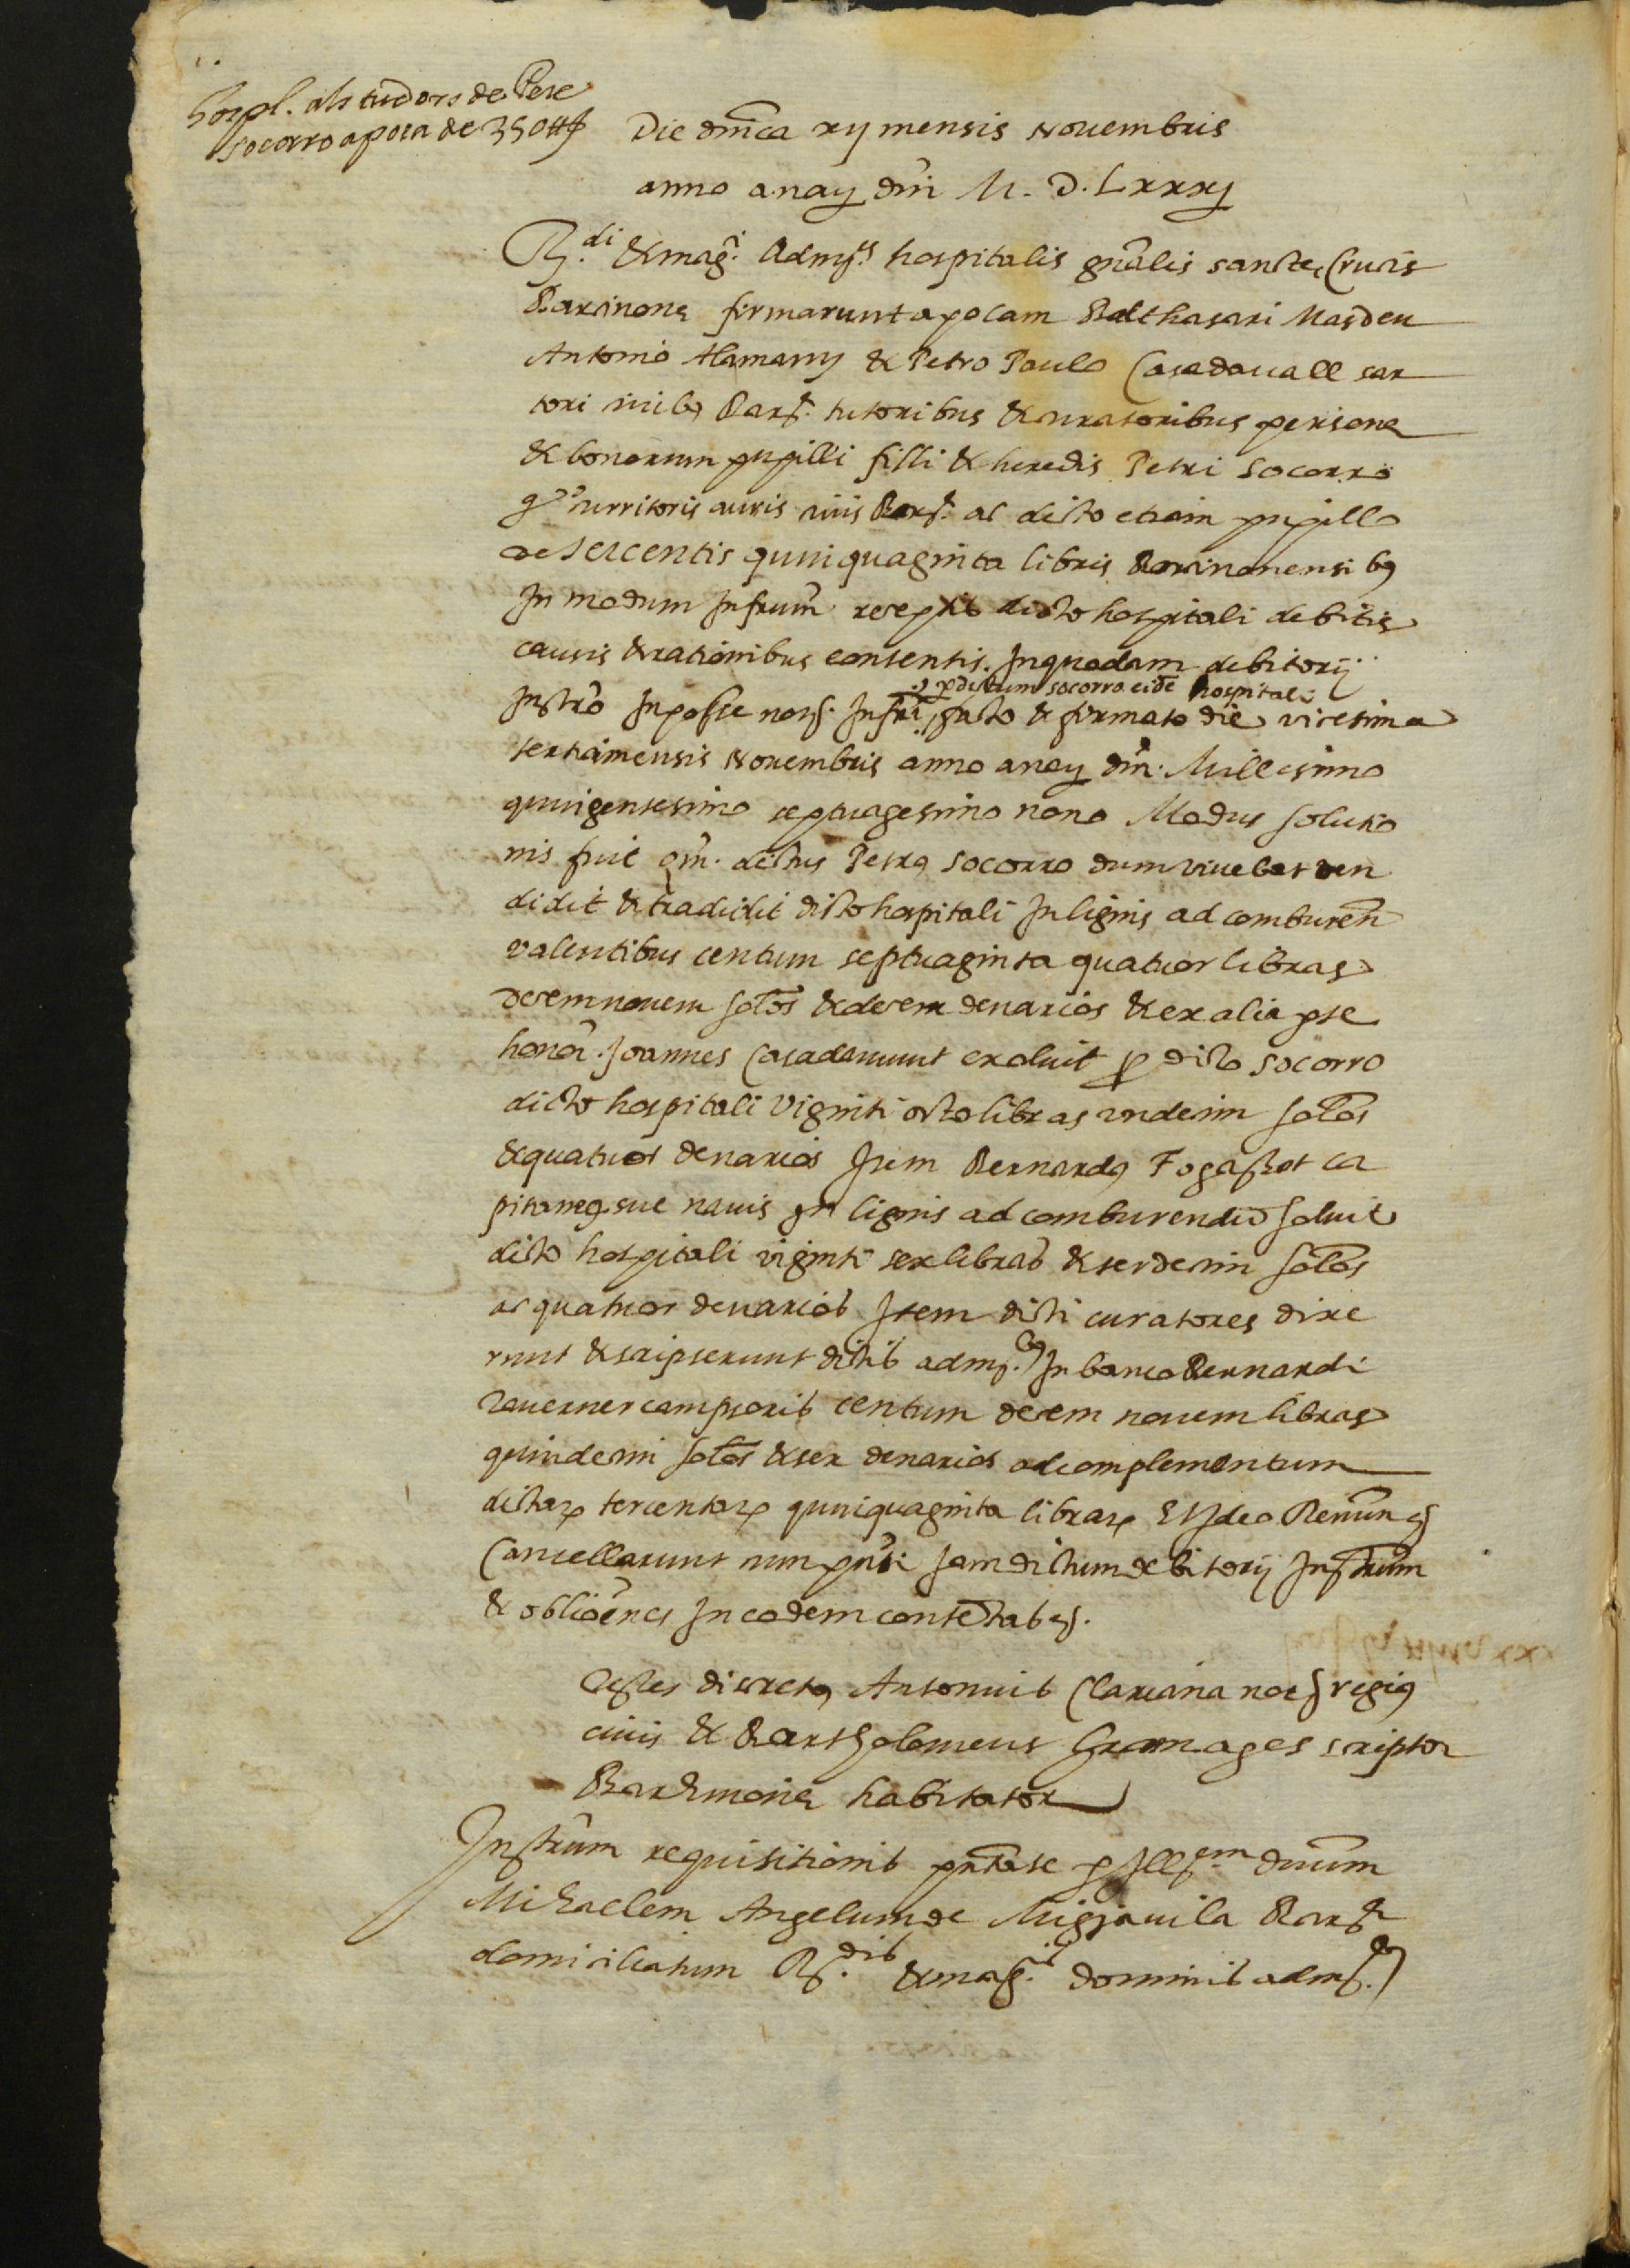 Hospl. als tudors de Pere
Socorro apoca de 350 ll
Die dnica xij mensis Nouembris
anno a nay dni M. D. Lxxxj
R.di & mag.ci Admrs hospitalis gnalis sancte Crucis
Barcinone firmarunt apocam Balthasari Masdeu
Antonio Alamany & Petro Paulo Casadauall sar
tori ciuibus Barn. tutoribus & curatoribus persone
& bonorum pupilli filli & heredis Petri Socorro
qo. curritoris auris ciuis Barn. ac dicto etiam pupillo
de tercentis quinquaginta libris Barcinonensibus
In modum Infrum receptis dicto hospitali debitis
causis & rationibus contentis In quodam debitorij
.s. per dictum socorro eidem hospitali
Instro In posse nots. Infri, facto & firmato die vicesima
tertia mensis Nouembris anno a nay dni. Millesimo
quingentesimo septuagesimo nono Modus solutio
nis fuit qm. dictus Petrus Socorro dum viuebat ven
didit & tradidit dicto hospitali In lignis ad comburen
valentibus centum septuaginta quatuor libras
decem nouem solos & decem denarios & ex alia pte
honor. Joannes Casadamunt exoluit pro dicto Socorro
dicto hospitali viginti octo libras undecim solos
& quatuor denarios Item Bernardus Fogassot ca
pitaneus sue nauis In lignis ad comburendum soluit
dicto hospitali viginti sex libras & sexdecim solos
ac quatuor denarios Item dicti curatores dixe
runt & scripserunt dictis admrs.bus In banco Bernardi
Tauerner campsoris centum decem nouem libras
quindecim solos & sex denarios ad complementum
dictarum tercentarum quinquaginta librarum Et Ideo Renun &
Cancellarunt cum pnti Jam dictum debitorij Instrum
& oblioenes In eodem contentas &.
Testes discretus Antonius Clariana nots regius
ciuis & Bartholomeus Gramages scriptor
Barchinone habitator
Instrum requisitionis pntate per Illem dnum
Michaelem Angelum de Migiauila Barn
domiciliatum R.dis & mag.cis dominis admr.bus